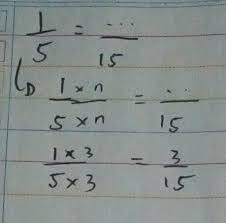 1/5 = .../15
↳ 1 × n / 5 × n = ../15
1 × 3 / 5 × 3 = 3/15